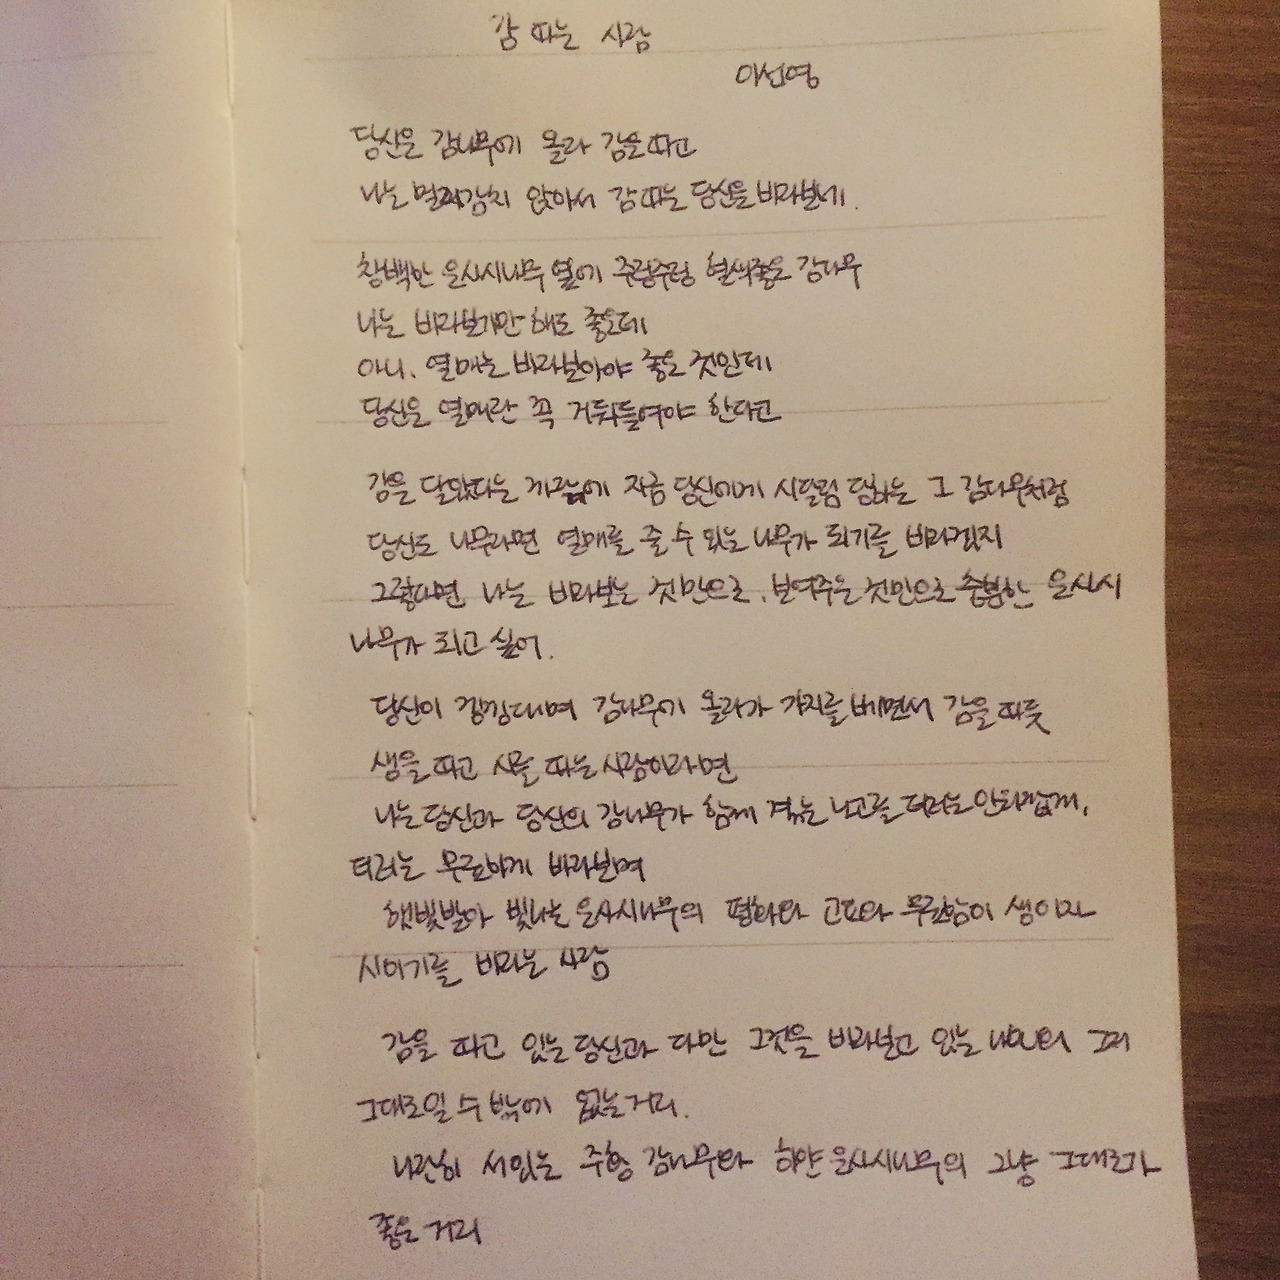 감 따는 사람
이선영
당신은 감나무에 올라 감을 따고
나는 멀찌감치 앉아서 감 따는 당신을 바라보네.
창백한 은사시나무 옆에 주렁주렁 혈색좋은 감나무
나는 바라보기만 해도 좋은데
아니, 열매는 바라보아야 좋은 것인데
당신은 열매란 꼭 거둬들여야 한다고
감을 달았다는 까닭에 지금 당신에게 시달림 당하는 그 감나무처럼
당신도 나무라면 열매를 줄 수 있는 나무가 되기를 바라겠지
그렇다면 나는 바라보는 것만으로, 보여주는 것만으로 충분한 은사시
나무가 되고 싶어.
당신이 낑낑대며 감나무에 올라가 가지를 베면서 감을 따듯
생을 따고 시를 따는 사람이라면
나는 당신과 당신의 감나무가 함께 겪는 노고를 더러는 안타깝게,
더러는 무료하게 바라보며
햇빛받아 빛나는 은사시나무의 평화와 고요와 무료함이 생이자
시이기를 바라는 사람
감을 따고 있는 당신과 다만 그것을 바라보고 있는 나와의 거리
그대로일 수 밖에 없는 거리.
나란히 서있는 주황 감나무와 하얀 은사시나무의 그냥 그대로가
좋은 거리